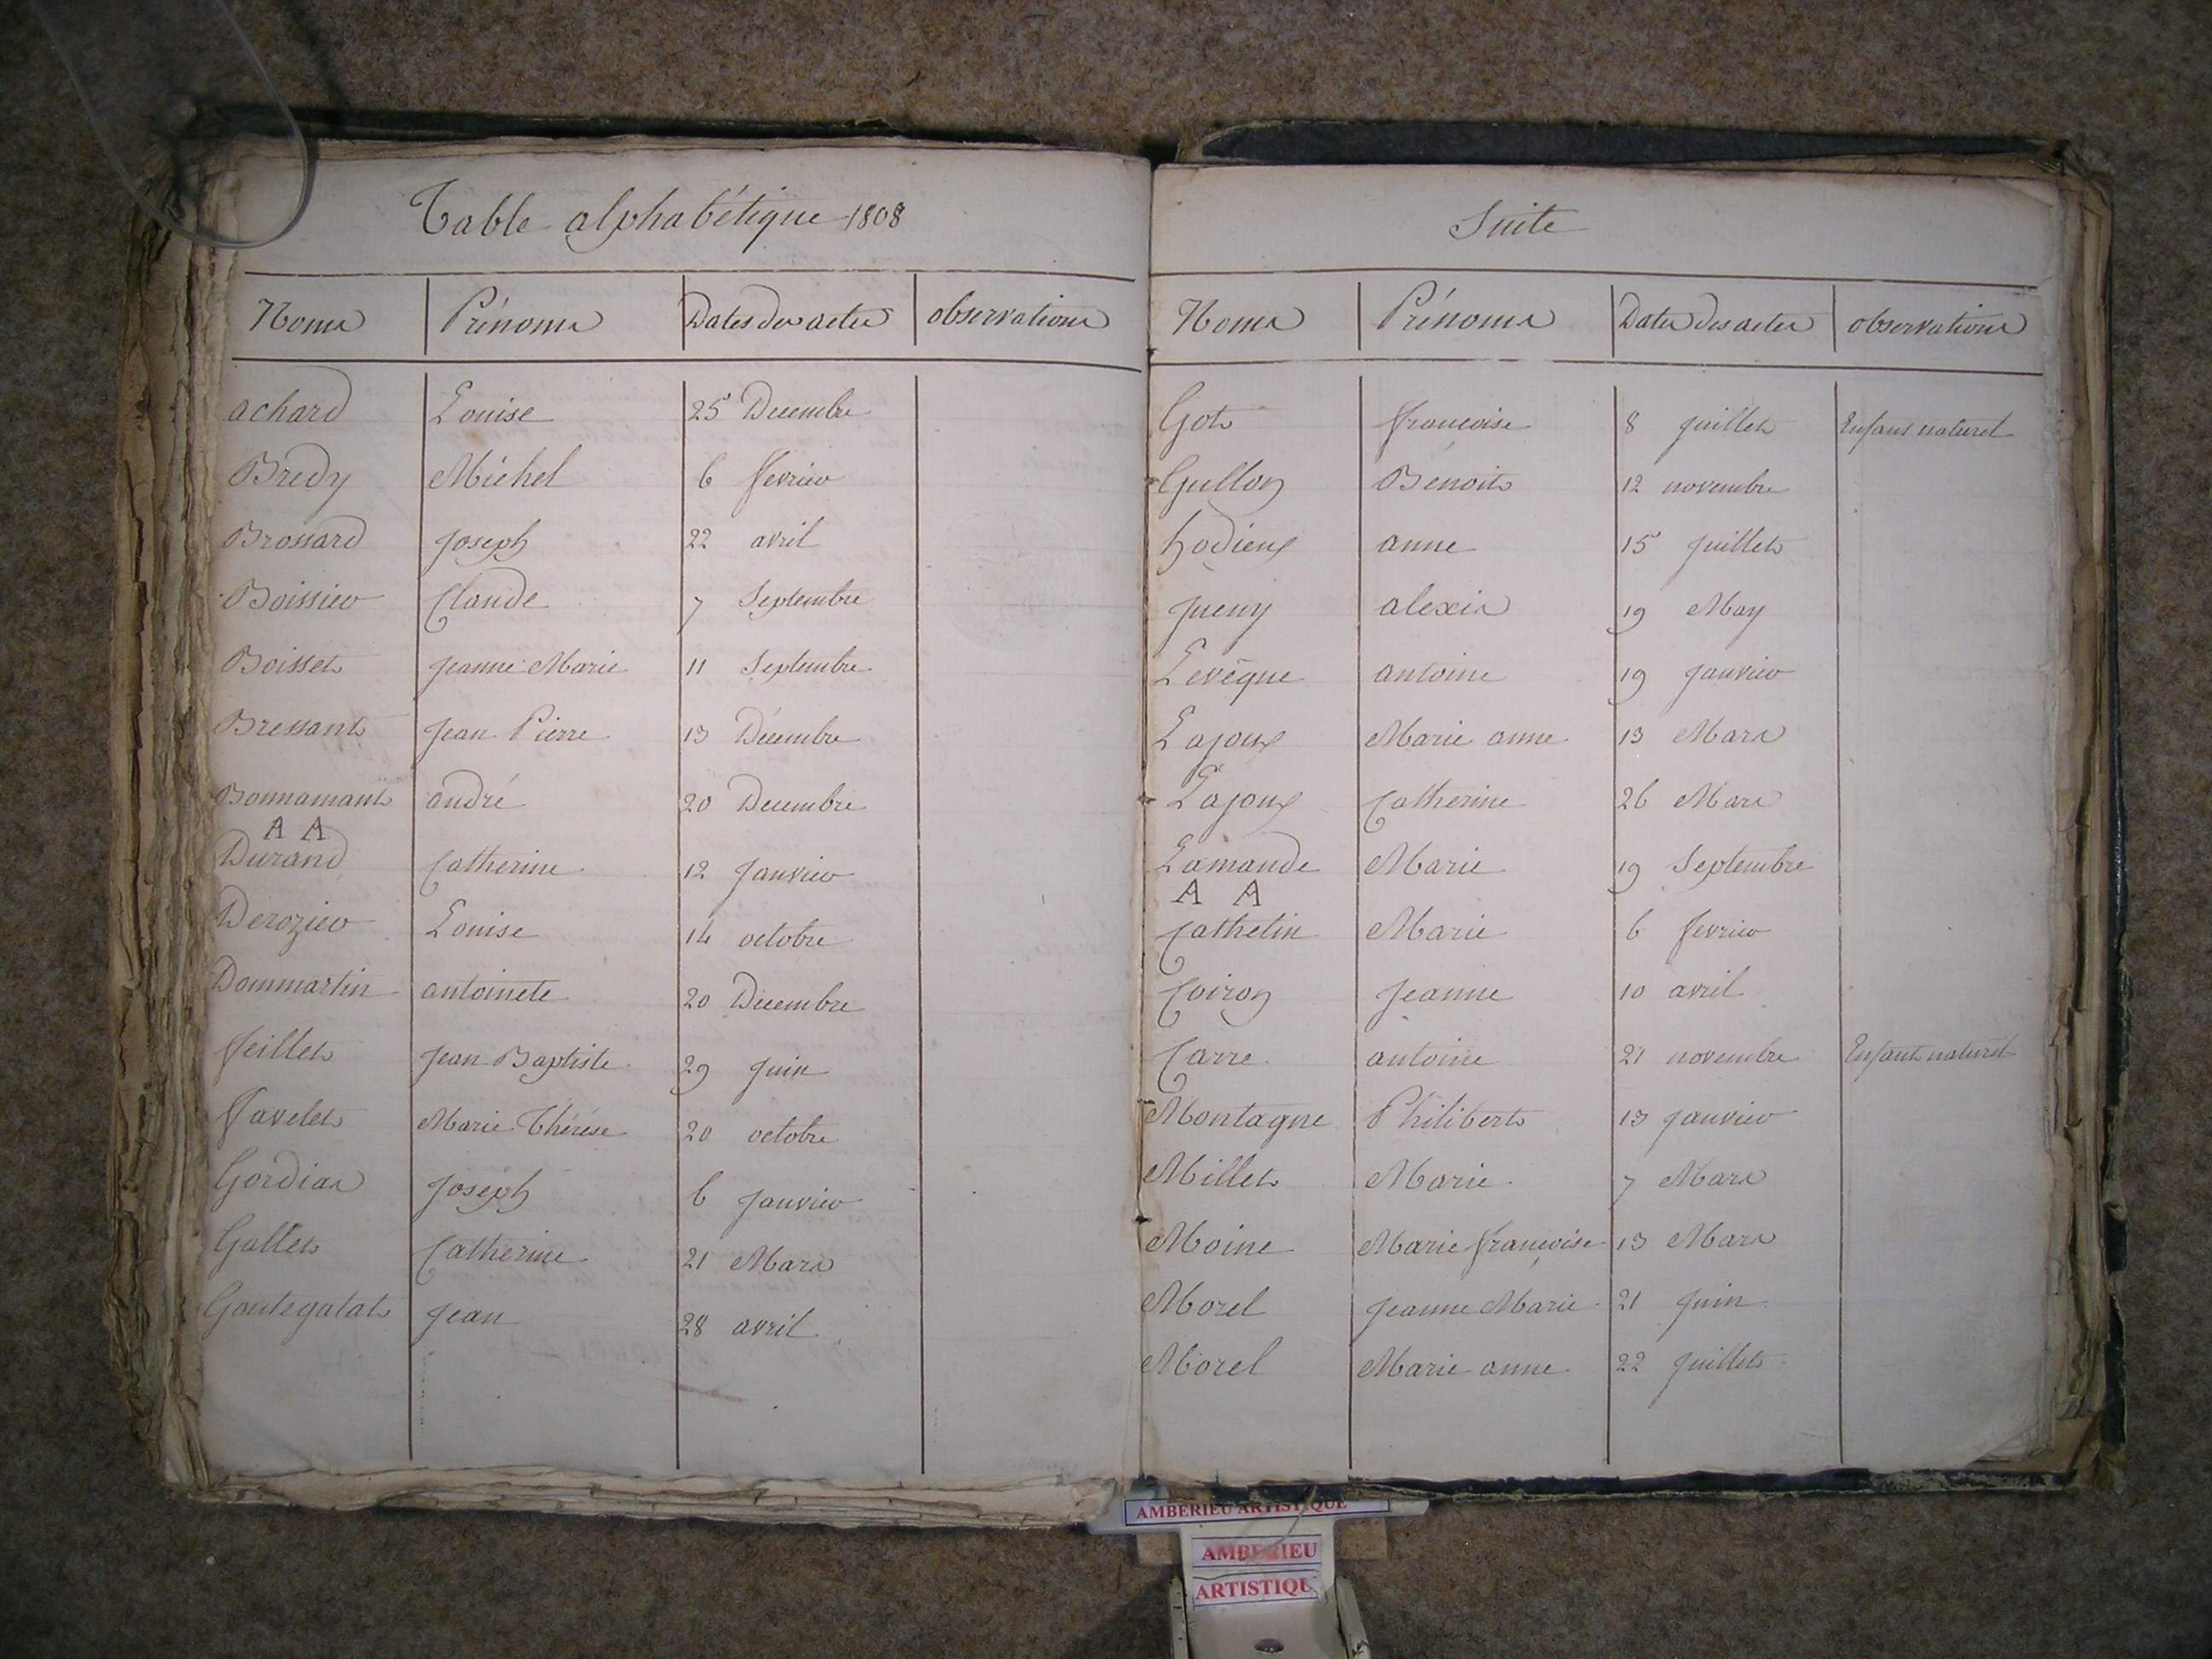 Table alphabétique 1808
Noms Prénoms Dates des actes observations
achard Louise 25 Decembre
Bredy Michel 6 fevrier
Brossard Joseph 22 avril
Boissieu Claude 7 Septembre
Boisset Jeanne Marie 11 Septembre
Bressant Jean Pierre 13 Décembre
Bonnamant andré 20 Decembre
A A
Durand Catherine 12 Janvier
Derozier Louise 14 octobre
Dammartin antoinete 20 Decembre
feillet Jean Baptiste 29 Juin
favelet Marie Thérèse 20 octobre
Gordias Joseph 6 Janvier
Gallet Catherine 21 Mars
Goutegatat Jean 28 avril
Suite
Noms Prénoms Dates des actes observations
Got françoise 8 Juillet Enfant naturel
Gullon Benoit 12 novembre
hodieux anne 15 Juillet
Jueny alexis 19 May
Levêque antoine 19 Janvier
Lajoux Marie anne 13 Mars
Lajoux Catherine 26 Mars
Lamande Marie 19 Septembre
A A
Cathelin Marie 6 fevrier
Coiron Jeanne 10 avril
Carre antoine 21 novembre Enfant naturel
Montagne Philibert 13 Janvier
Millet Marie 7 Mars
Moine Marie françoise 13 Mars
Morel Jeanne Marie 21 Juin
Morel Marie anne 22 Juillet
AMBERIEU ARTISTIQUE
AMBERIEU
ARTISTIQUE